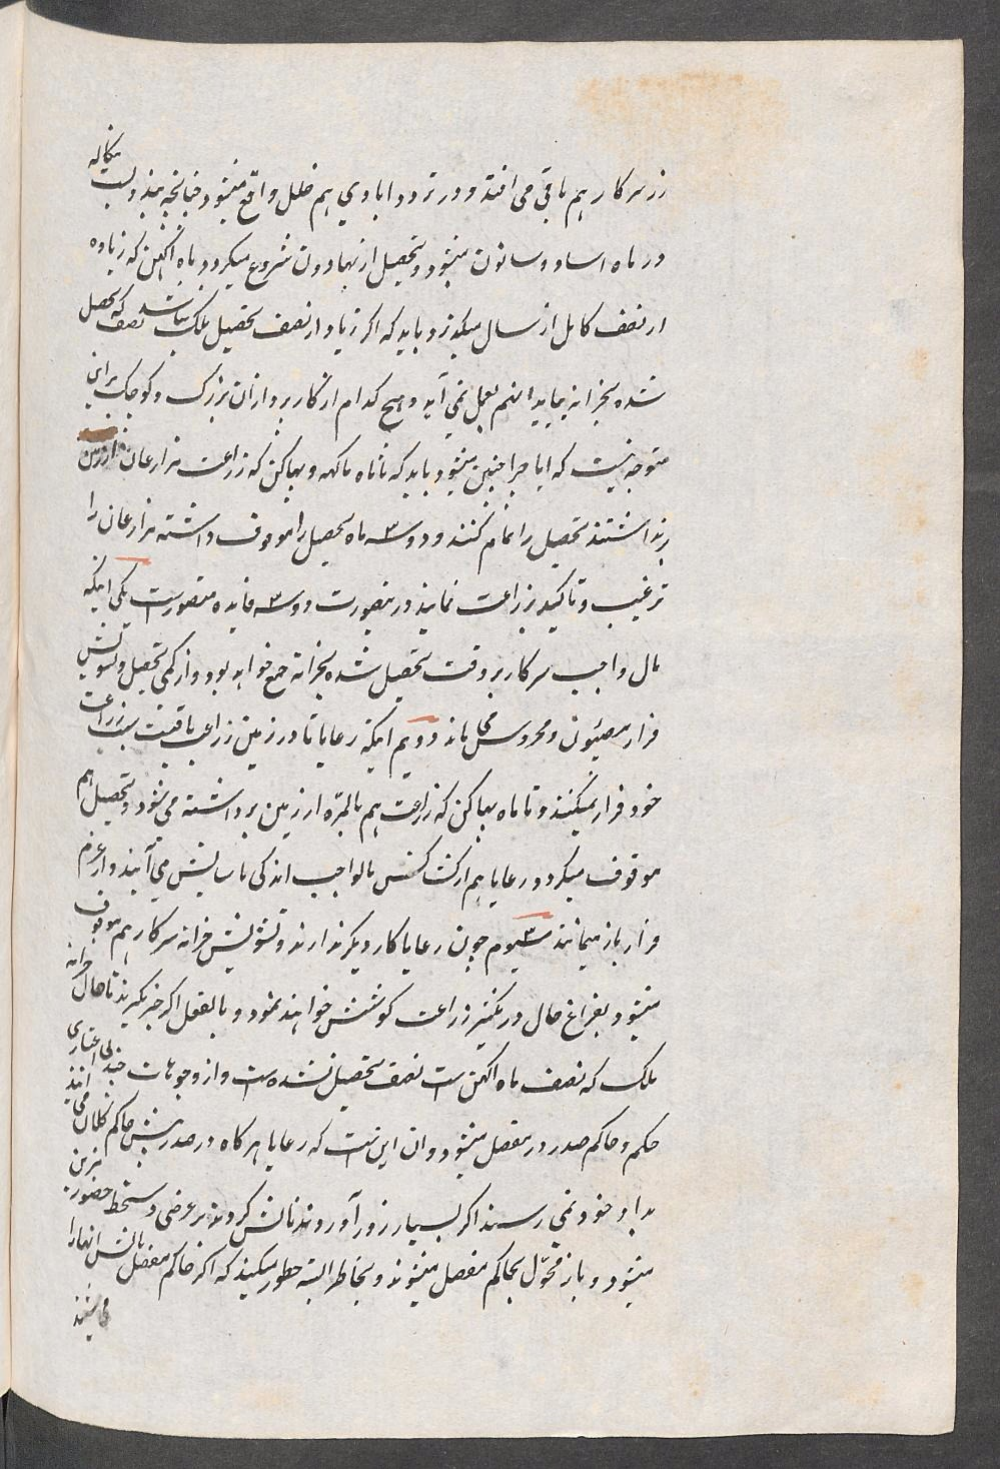 زر سرکار هم باقی می افتد و در تردد و ابادی هم خلل واقع میشود چنانچه بندوبست بنگاله
در ماه اساد و سانون میشود و تحصیل از بهادون شروع میکردد و بماه اکهن که زیاده
از نصف کامل از سال میکذرد باید که اکر زیاد از نصف تحصیل ملک نباشد نصف که تحصیل
شده بخزانه بیاید اینهم بعمل نمی آید و هیچ کدام از کاربردازان بزرک و کوچک برای
متوجه نیست که ایا چرا چنین میشود باید که تا ماه ماکهه و پهاکن که زراعت مزارعان از زمین
برنداشتند تحصیل را تمام کنند و دو سه ماه تحصیل را موقوف داشته مزارعان را
ترغیب و تاکید بزراعت نمایند درینصورت دو سه فایده متصورست یکی اینکه
مال واجب سرکار بر وقت تحصیل شده بخزانه جمع خواهد بود و از کمی تحصیل و تشویش
فرار مصئون و محروس می ماند دویم اینکه رعایا تا در زمین زراعت باقیست بسبب زراعت
خود فرار نمیکنند و تا ماه پهاکن که زراعت هم بالمره از زمین برداشته می شود و تحصیل هم
موقوف میکردد رعایا هم از کشت کنش مالواجب اندکی باسایش می آیند و از عزم
فرار باز میمانند سیوم چون رعایا کار دیکر ندارند و تشویش خزانه سرکار هم موقوف
میشود بفراغ حال در تکثیر زراعت کوشش خواهند نمود و بالفعل اکر خبر بکیرند تا حال خزانه
ملک که نصف ماه اکهن است نصف تحصیل نشده است و از وجوهات چند بی اعتباری
حکم و حاکم صدر در مفصل میشود و ان این است که رعایا هرکاه در صدر پیش حاکم کلان می ایند
بداد خود نمی رسند اکر بسیار زور آوردند نالش کردند بر عرضی دستخط حضور مزین
میشود و باز محوّل بحاکم مفصل میشوند و بخاطر البته خطور میکند که اکر حاکم مفصل نالش انها را
می شنید